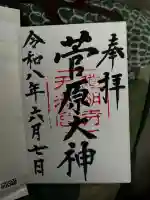 奉拝
菅原大神
令和八年六月七日